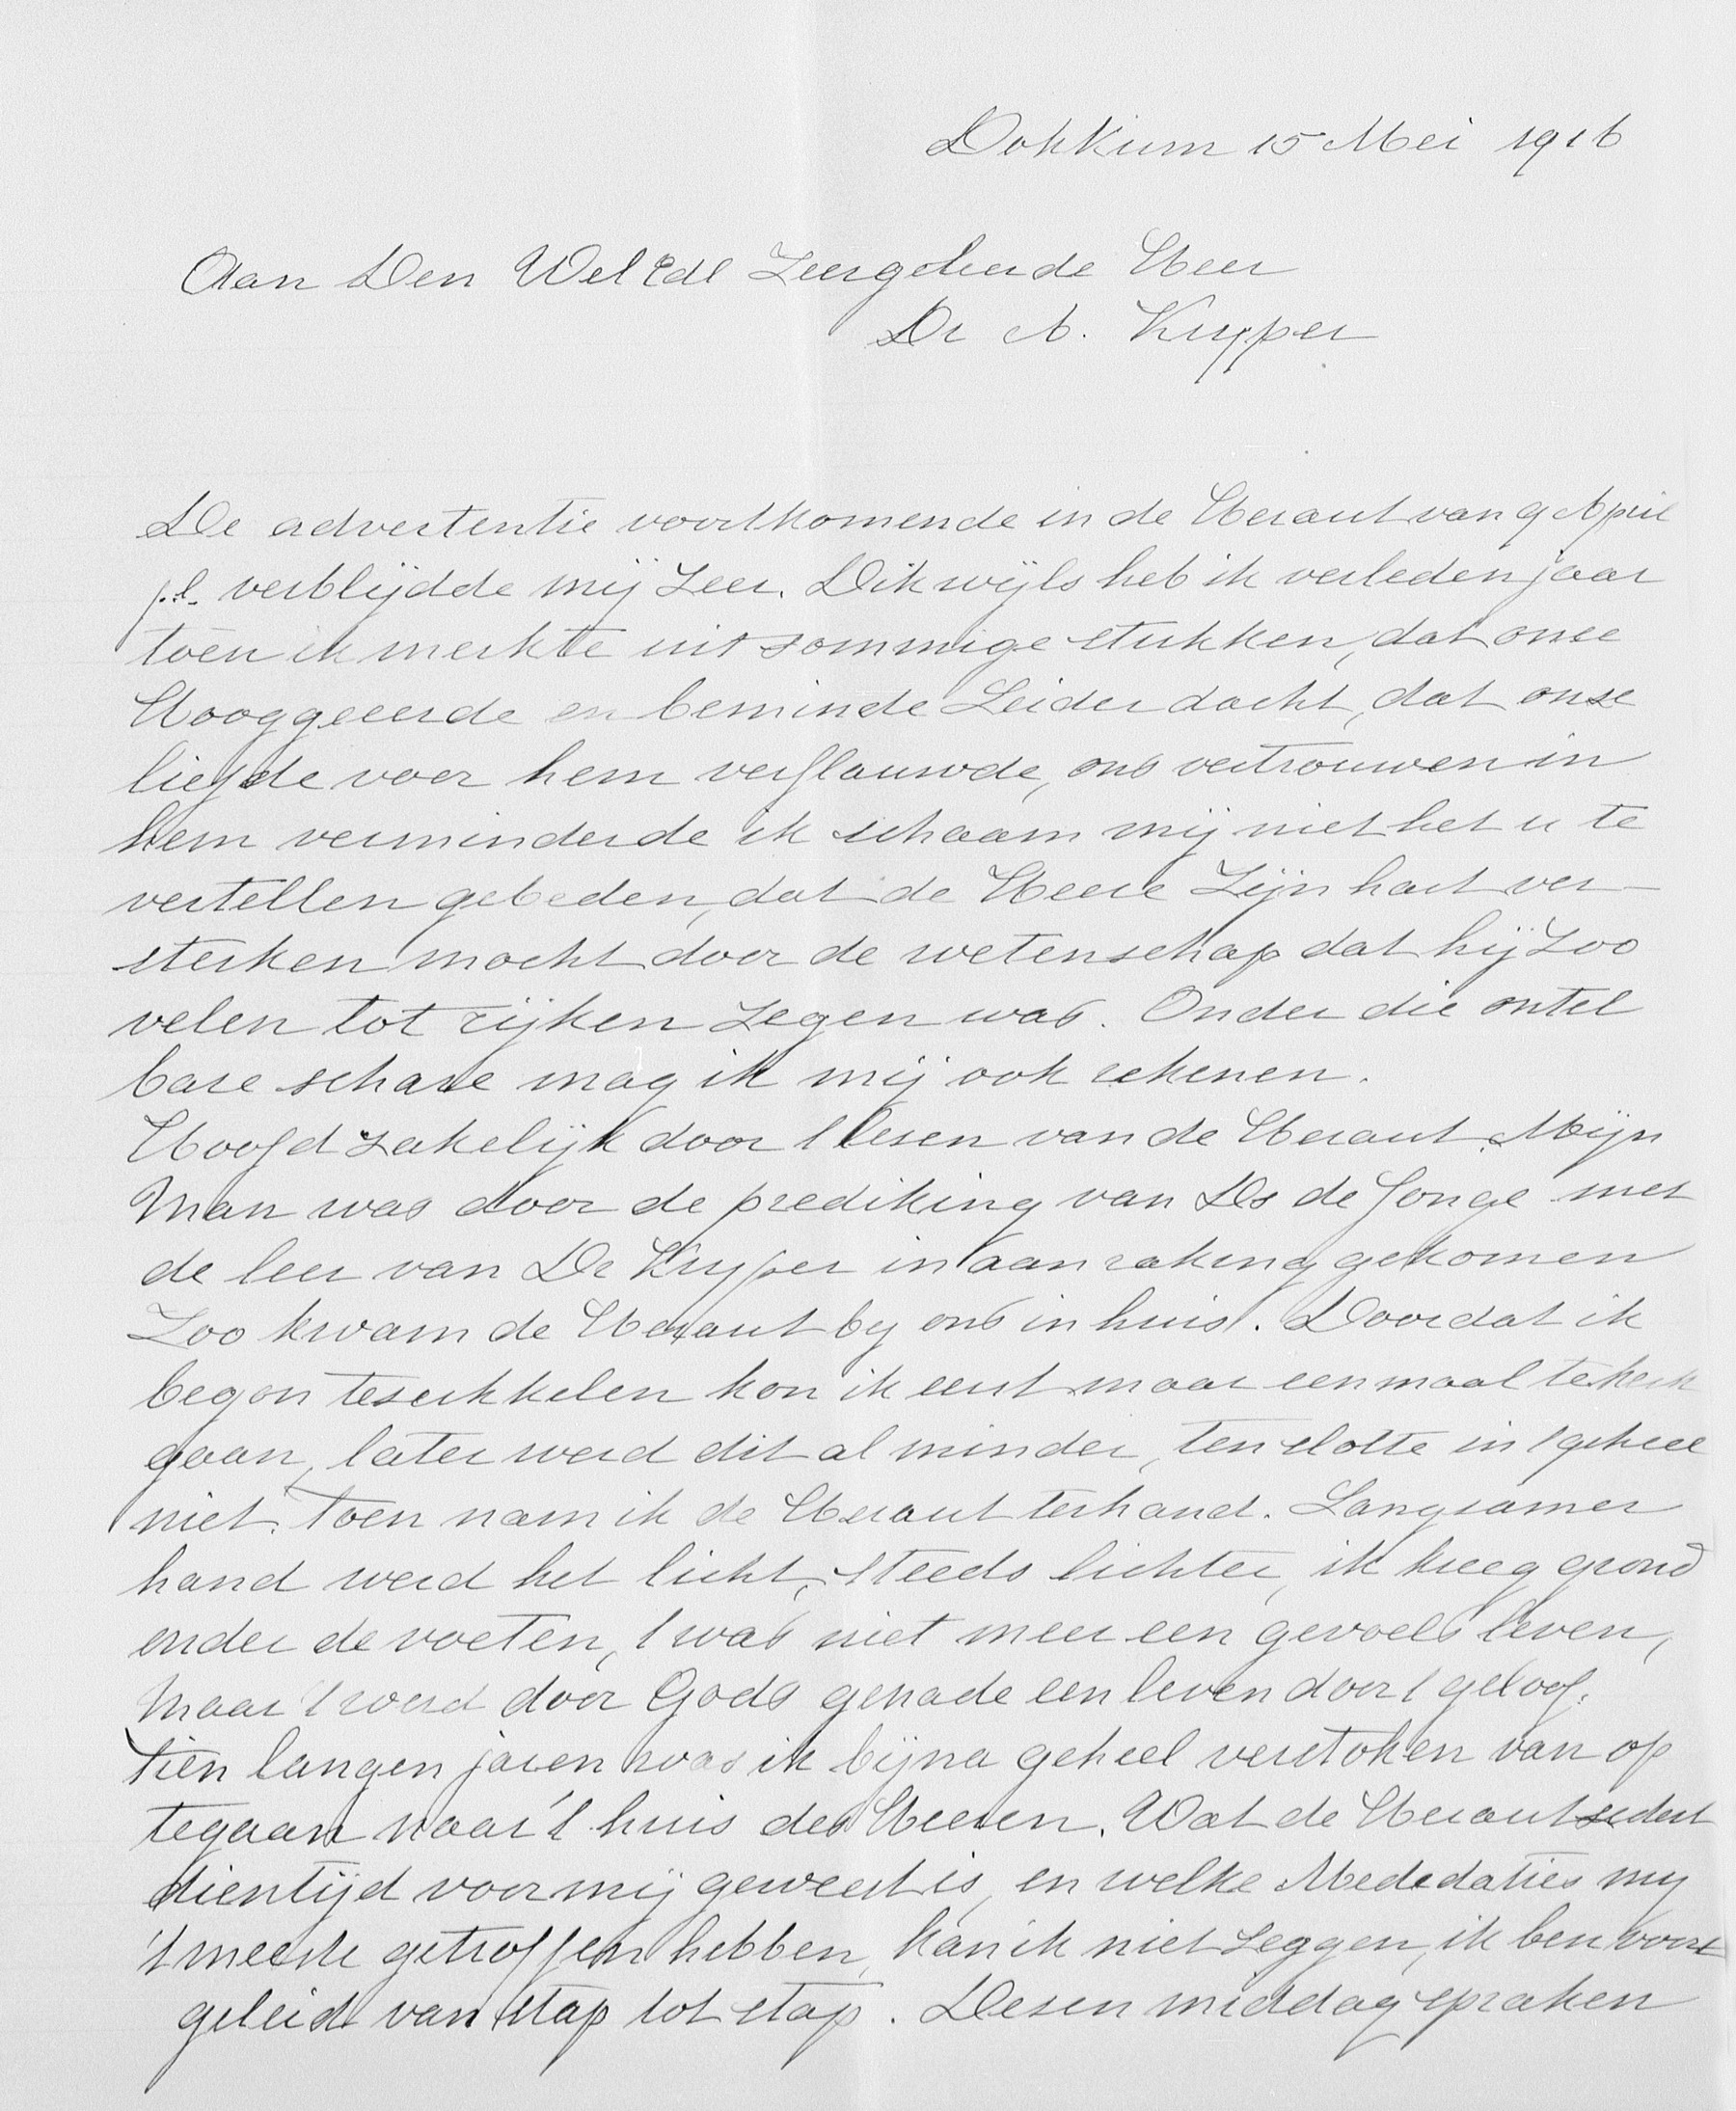 Dokkum 15 Mei 1916
Aan Den Wel Edl Zeergeleerde Heer
Dr A. Kuyper
De advertentie voorkomende in de Heraut van 9 April
p.l. verblijdde mij Zeer. Dikwijls heb ik verleden jaar
toen ik merkte uit sommige stukken, dat onse
Hooggeeerde en beminde Leider dacht, dat onse
liefde voor hem verflauwde, ons vertrouwen in
hem verminderde ik schaam mij niet het u te
vertellen gebeden, dat de Heere Zijn hart ver-
sterken mocht door de wetenschap dat hij Zoo
velen tot rijken Zegen was. Onder die ontel
bare schare mag ik mij ook rekenen.
Hoofdzakelijk door 't lesen van de Heraut. Mijn
Man was door de prediking van Ds de Jonge met
de leer van Dr Kuyper in aanraking gekomen
Zoo kwam de Heraut by ons in huis. Doordat ik
begon te sukkelen kon ik eerst maar eenmaal te kerk
gaan, later werd dit al minder, ten slotte in 't geheel
niet. Toen nam ik de Heraut ter hand. Langsamer
hand werd het licht, steeds lichter, ik kreeg grond
onder de voeten, 't was niet meer een gevoels leven,
Maar 't werd door Gods genade een leven door 't geloof.
Tien langen jaren was ik bijna geheel verstoken van op
tegaan naar 't huis des Heeren. Wat de Heraut sedert
dien tijd voor mij geweest is, en welke Mededaties my
't meeste getroffen hebben, kan ik niet Zeggen, ik ben voort
geleid van stap tot stap. Desen middag spraken